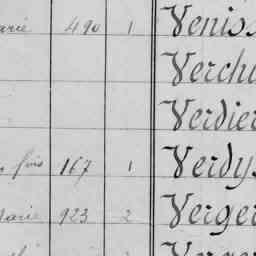 arie 490 1 Veniss
Verch
Verdier
fois 167 1 Verdy
Marie 923 2 Verger